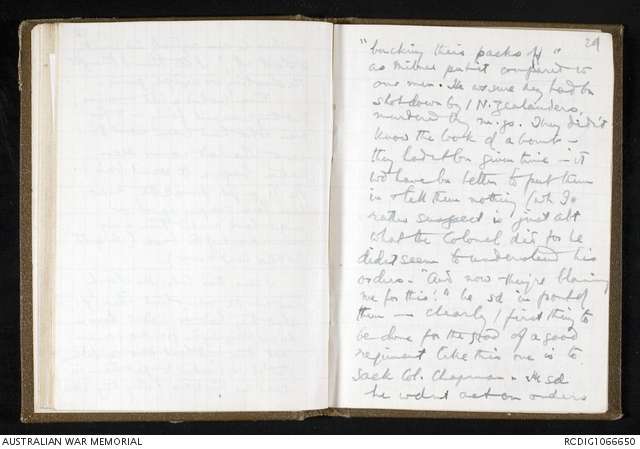 29
"bucking their packs off"
as Milne put it compared to
our men. He was sure they had bn
shot down by / N. Zealanders,
murdered by m.gs. They didn't
know the look of a bomb -
they hadn't bn given time - it
wd have bn better to put them
in & tell them nothing (wh I
rather suspect is just abt
what the Colonel did, for he
didn't seem to understand his
orders. "And now they're blaming
me for this!" he sd in front of
them - clearly / first thing to
be done for the good of a good
regiment like this one is to
sack Col. Chapman. He sd
he wdnt act on orders
AUSTRALIAN WAR MEMORIAL
RCDIG1066650